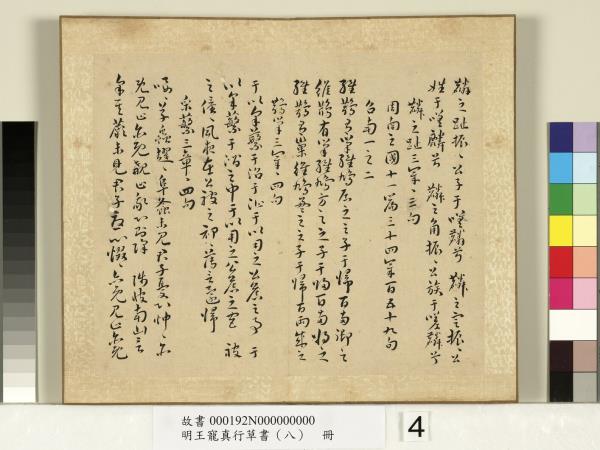 麟之趾振〻公子于嗟麟兮 麟之定振〻公
姓于嗟麟兮 麟之角振〻公族于嗟麟兮
麟之趾三章〻三句
周南之國十一篇三十四章百五十九句
召南一之二
維鵲有巢維鳩居之之子于歸百兩御之
維鵲有巢維鳩方之之子于歸百兩將之
維鵲有巢維鳩盈之之子于歸百兩成之
鵲巢三章〻四句
于以采蘩于沼于沚于以用之公侯之事 于
以采蘩于澗之中于以用之公侯之宮 被
之僮〻夙夜在公被之祁〻薄言還歸
采蘩三章〻四句
喓〻草蟲趯〻阜螽未見君子憂心忡〻亦
既見止亦既覯止我心則降 陟彼南山言
采其蕨未見君子憂心惙〻亦既見止亦既
故書 000192N000000000
明王寵真行草書（八） 冊
4